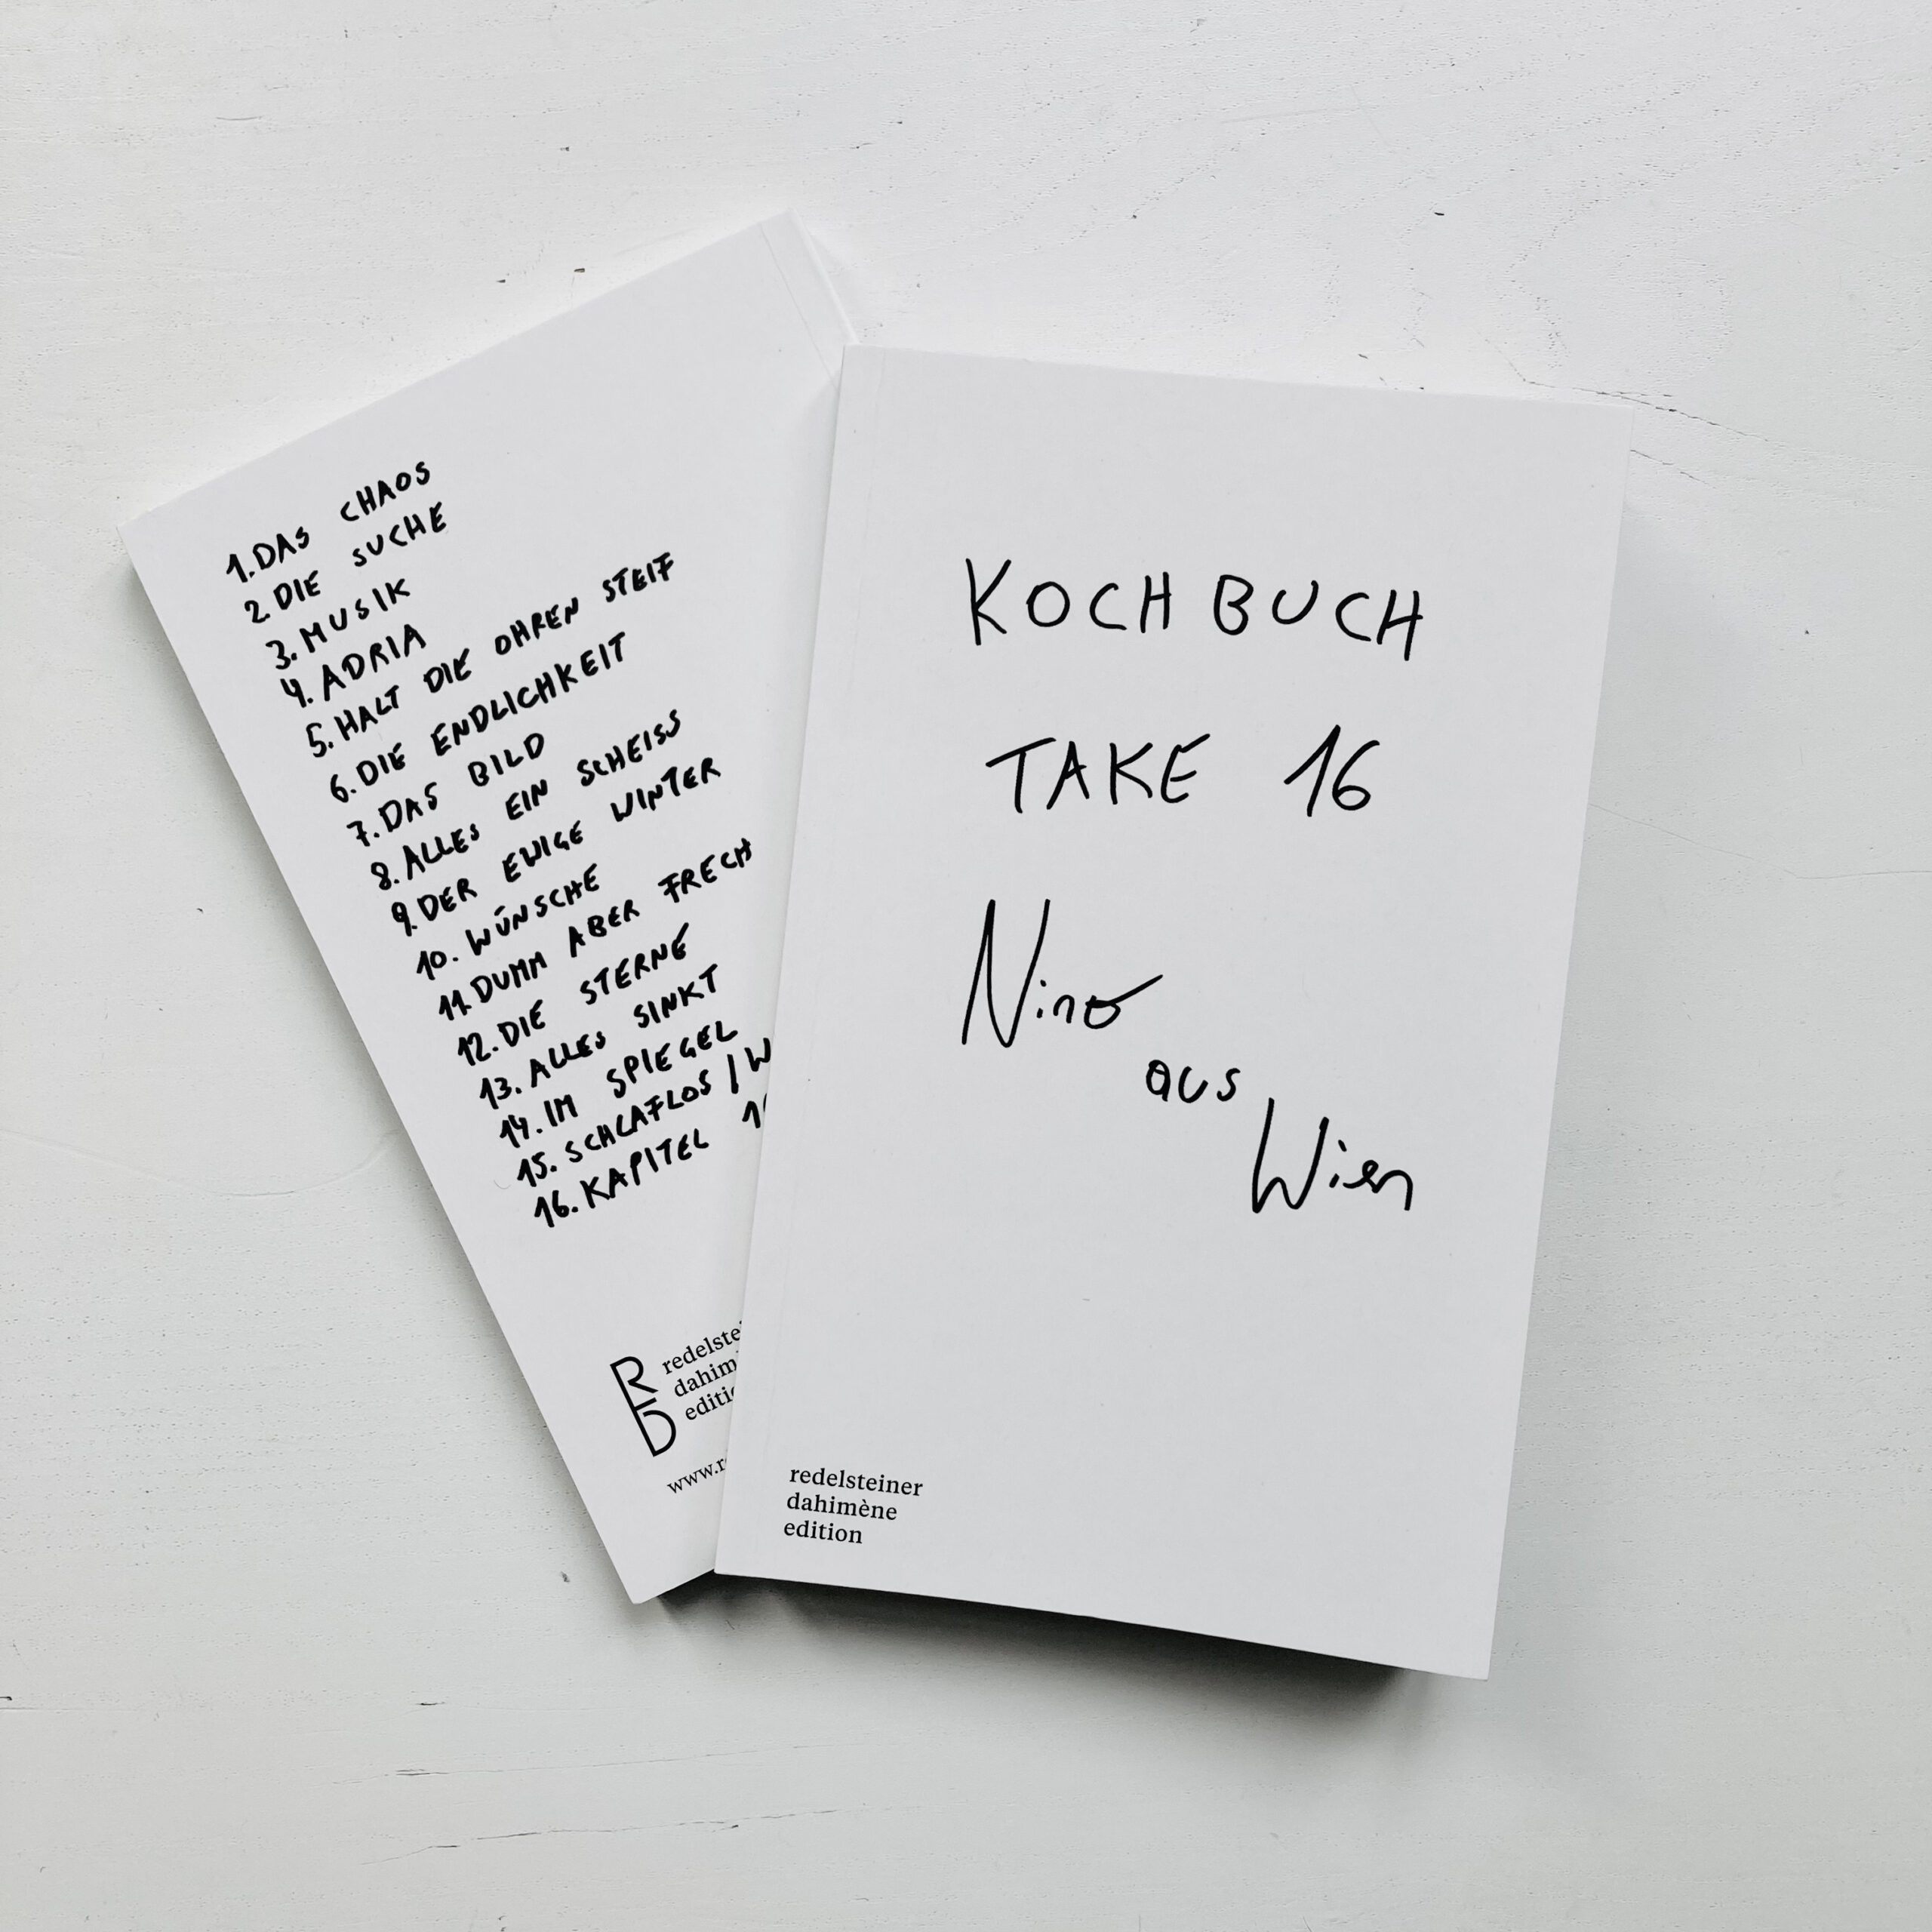 1. DAS CHAOS
2. DIE SUCHE
3. MUSIK
4. ADRIA
5. HALT DIE OHREN STEIF
6. DIE ENDLICHKEIT
7. DAS BILD
8. ALLES EIN SCHEISS
9. DER EWIGE WINTER
10. WÜNSCHE
11. DUMM ABER FRECH
12. DIE STERNE
13. ALLES SINKT
14. IM SPIEGEL
15. SCHLAFLOS /
16. KAPITEL
RD
KOCHBUCH
TAKE 16
Nino
aus
Wien
redelsteiner
dahimène
edition